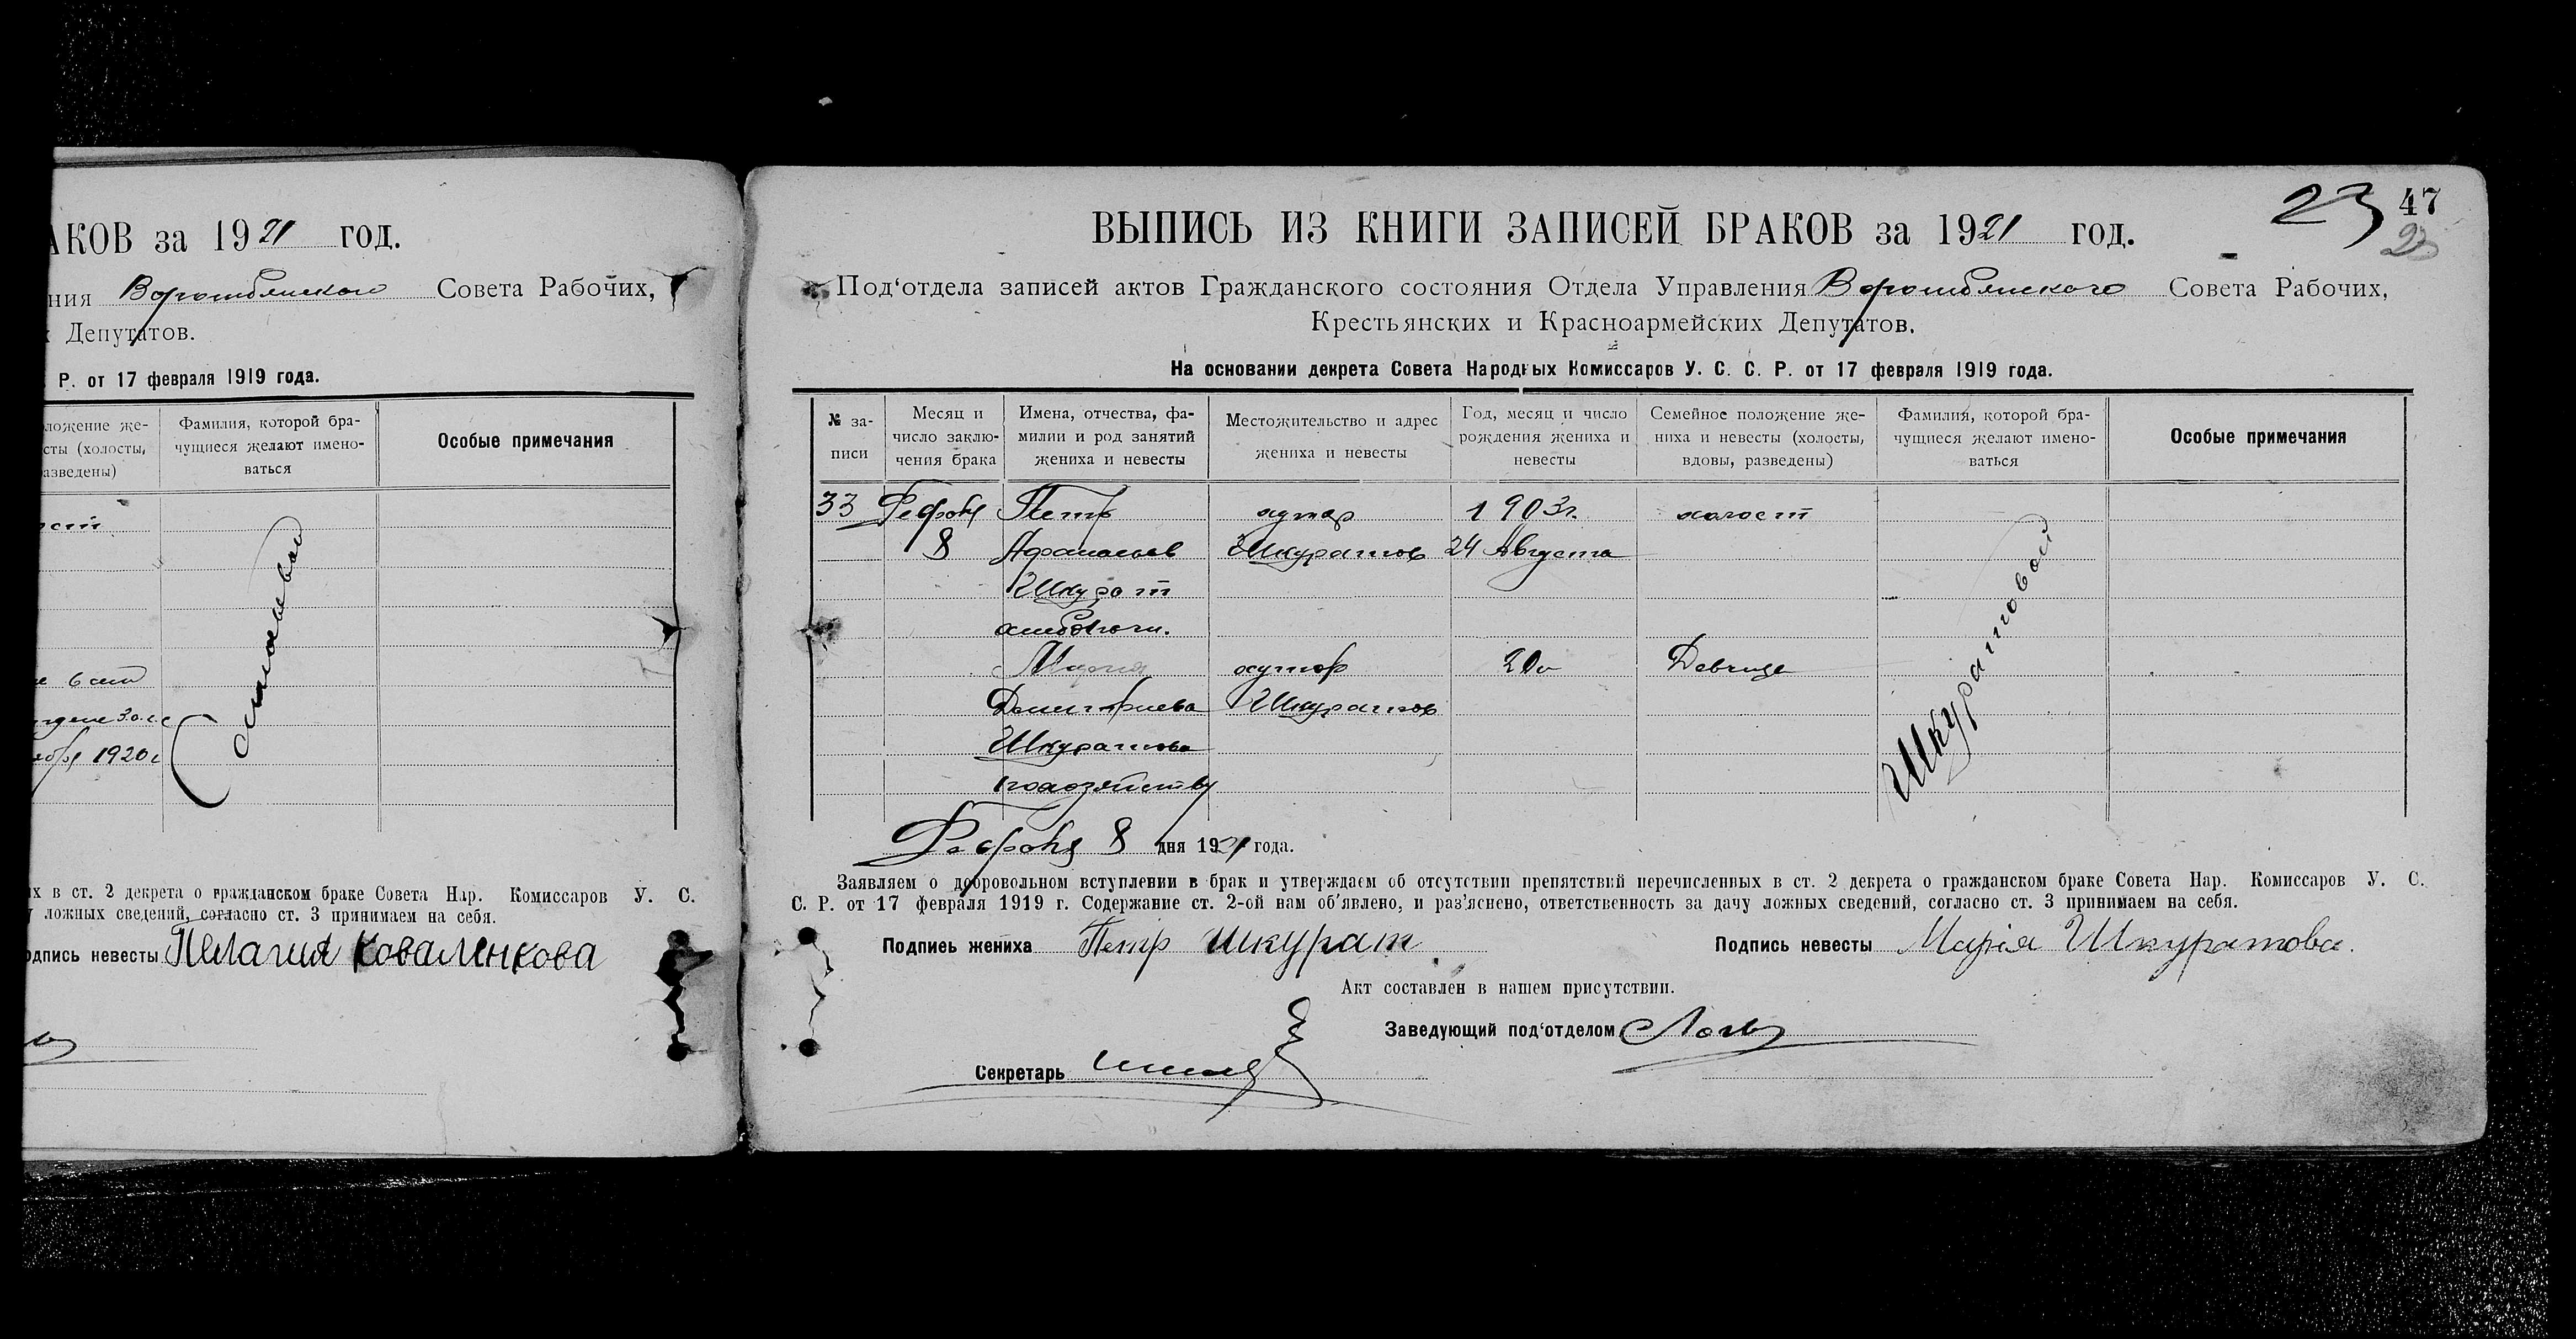 АКОВ за 1921 год.
ния Ворожбянского Совета Рабочих,
х Депутатов.
Р. от 17 февраля 1919 года.
ложение же-
сты (холосты,
азведены)
Фамилия, которой бра-
чущиеся желают имено-
ваться
Особые примечания
1920 г
их в ст. 2 декрета о гражданском браке Совета Нар. Комиссаров У. С.
у ложных сведений, согласно ст. 3 принимаем на себя.
одпись невесты Пелагия Коваленкова
47
23
23
ВЫПИСЬ ИЗ КНИГИ ЗАПИСЕЙ БРАКОВ за 1921 год.
Под‘отдела записей актов Гражданского состояния Отдела Управления Ворожбянского Совета Рабочих,
Крестьянских и Красноармейских Депутатов.
На основании декрета Совета Народных Комиссаров У. С. С. Р. от 17 февраля 1919 года.
№ за-
писи
Месяц и
число заклю-
чения брака
Имена, отчества, фа-
милии и род занятий
жениха и невесты
Местожительство и адрес
жениха и невесты
Год, месяц и число
рождения жениха и
невесты
Семейное положение же-
ниха и невесты (холосты,
вдовы, разведены)
Фамилия, которой бра-
чущиеся желают имено-
ваться
Особые примечания
33 Февраля Петр хутор 1903г. холост
8 Афанасьев Шкуратов 24 Августа
Шкурат
хлебопаш.
Мария хутор 20 Девица
Дмитриева Шкуратов
Шкуратова
похозяйству
Шкуратовой
Февраля 8 дня 1921 года.
Заявляем о добровольном вступлении в брак и утверждаем об отсутствии препятствий перечисленных в ст. 2 декрета о гражданском браке Совета Нар. Комиссаров У. С.
С. Р. от 17 февраля 1919 г. Содержание ст. 2-ой нам об‘явлено, и раз‘яснено, ответственность за дачу ложных сведений, согласно ст. 3 принимаем на себя.
Подпись жениха Петр Шкурат
Подпись невесты Марія Шкуратова.
Акт составлен в нашем присутствии.
Заведующий под‘отделом
Секретарь